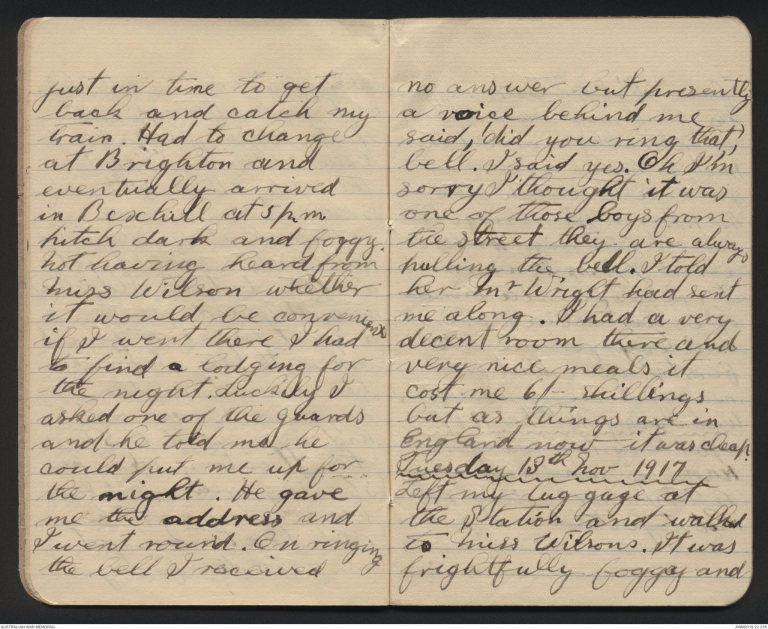 just in time to get
back and catch my
train. Had to change
at Brighton and
eventually arrived
in Bexhill at 5 p.m
pitch dark and foggy.
not having heard from
miss Wilson whether
it would be convenient
if I went there I had
to find a lodging for
the night. Luckily I
asked one of the guards
and he told me he
could put me up for
the night. He gave
me the address and
I went round. On ringing
the bell I received
no answer but presently
a voice behind me
said, "did you ring that
bell. I said yes. Oh I'm
sorry I thought it was
one of those boys from
the street they are always
pulling the bell. I told
her Mr Wright had sent
me along. I had a very
decent room there and
very nice meals it
cost me 6/- shillings
but as things are in
England now it was cheap.
Tuesday 13th Nov 1917
Left my luggage at
the station and walked
to miss Wilsons. It was
frightfully foggy and
AUSTRALIAN WAR MEMORIAL